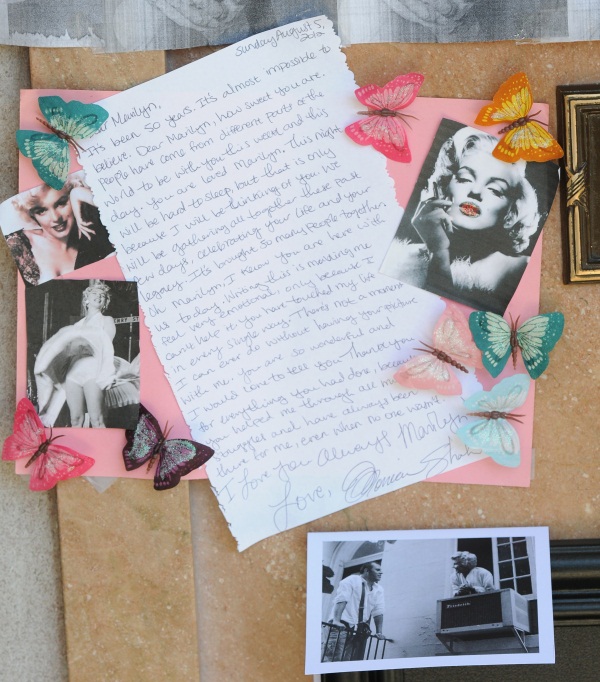 Sunday August 5,
2012
Dear Marilyn,
It's been 50 years. It's almost impossible to
believe. Dear Marilyn, how sweet you are.
People have come from different parts of the
world to be with you this week, and this
day. You are loved Marilyn. This night
will be hard to sleep, but that is only
because I will be thinking of you. We
will be gathering all together these past
few days, celebrating your life and your
legacy. It's brought so many people together.
Oh Marilyn, I know you are here with
us today. Writing this is making me
feel very emotional, only because I
can't help it. You have touched my life
in every single way. There's not a moment
I can ever do without having your picture
with me. You are so wonderful and
I would love to tell you Thank you
for everything you had done, because
you helped me through all my
struggles and have always been
there for me, even when no one wasn't.
I Love You Always Marilyn
Love,